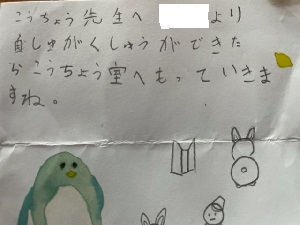 こうちょう先生へ より
自しゅがくしゅうができた
らこうちょう室へもっていきま
すね。